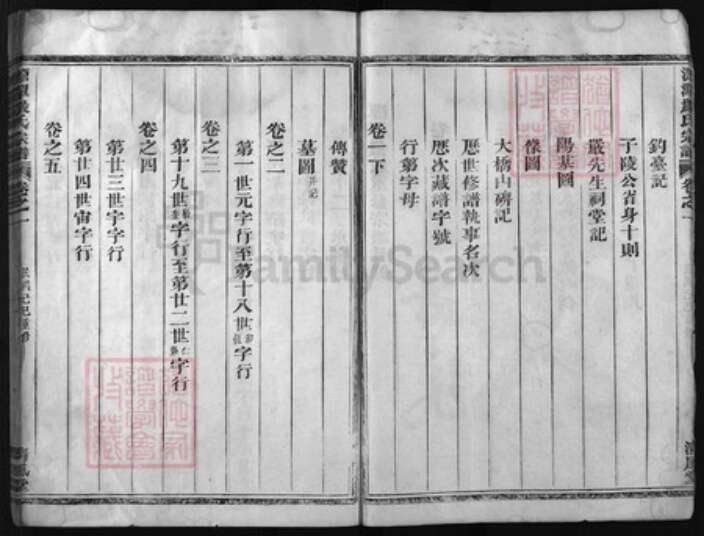 釣臺記
子陵公省身十則
嚴先生祠堂記
陽基圖
像圖
大橋山碑記
歷世修譜執事名次
歷次藏譜字號
行第字母
卷一下
傳贊
墓圖 并記
卷之二
第一世元字行至第十八世字行
卷之三
第十九世字行至第廿二世字行
卷之四
第廿三世宇字行
第廿四世宙字行
卷之五
FamilySearch